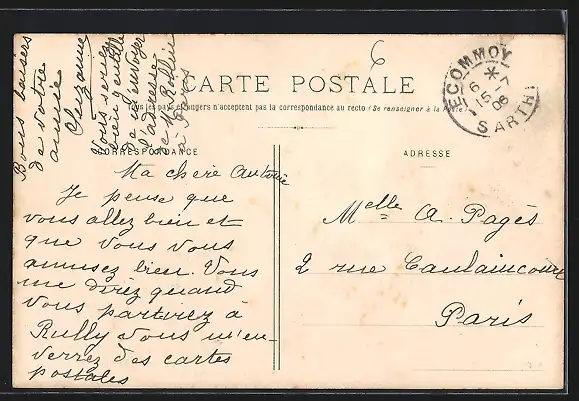 CARTE POSTALE
Tous les pays étrangers n'acceptent pas la correspondance au recto (Se renseigner à la Poste)
CORRESPONDANCE
ADRESSE
Ma chère Antoinie
Je pense que
vous allez bien et
que vous vous
amusez bien. Vous
me direz quand
vous partirez à
Rully vous m'en-
verrez des cartes
postales
Bons baisers
de votre
amie
Suzanne
Vous seriez
bien gentille
de m'envoyer
l'adresse
de M. Rollin
à Paris
Melle A. Pagès
2 rue Caulaincourt
Paris
ECOMMOY
6
15-7
06
SARTHE
6